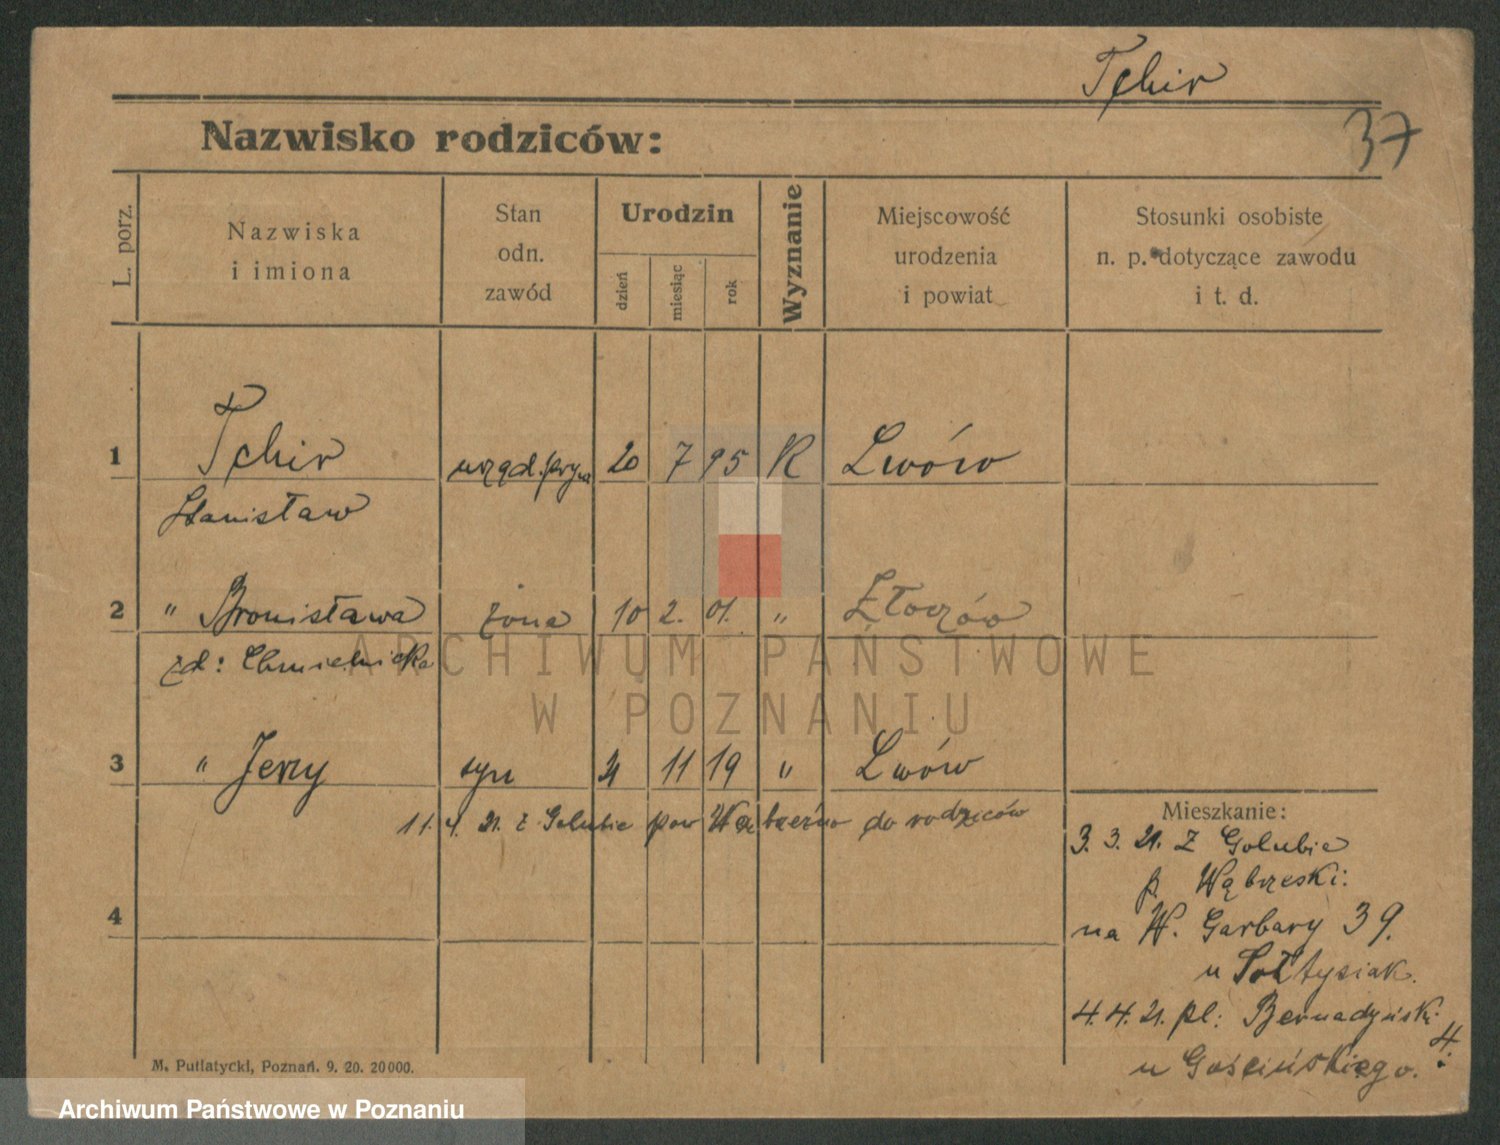 Tchir
37
Nazwisko rodziców:
L. porz.
Nazwiska
i imiona
Stan
odn.
zawód
Urodzin
dzień
miesiąc
rok
Wyznanie
Miejscowość
urodzenia
i powiat
Stosunki osobiste
n. p. dotyczące zawodu
i t. d.
1 Tchir urzęd. pryw 20 7 95 K Lwów
Stanisław
2 " Bronisława żona 10 2. 01. " Złoczów
zd: Chmielnicka
3 " Jerzy syn 4 11 19 " Lwów
11. 4. 21. z Golubie pow Wąbrzeźno do rodziców
4
Mieszkanie:
3. 3. 21. z Golubia
p. Wąbrzeski:
na W. Garbary 39.
u Sołtysiak.
4. 4. 21. pl: Bernadyński 4.
u Gościńskiego.
M. Putiatycki, Poznań. 9. 20. 20000.
ARCHIWUM PAŃSTWOWE
W POZNANIU
Archiwum Państwowe w Poznaniu